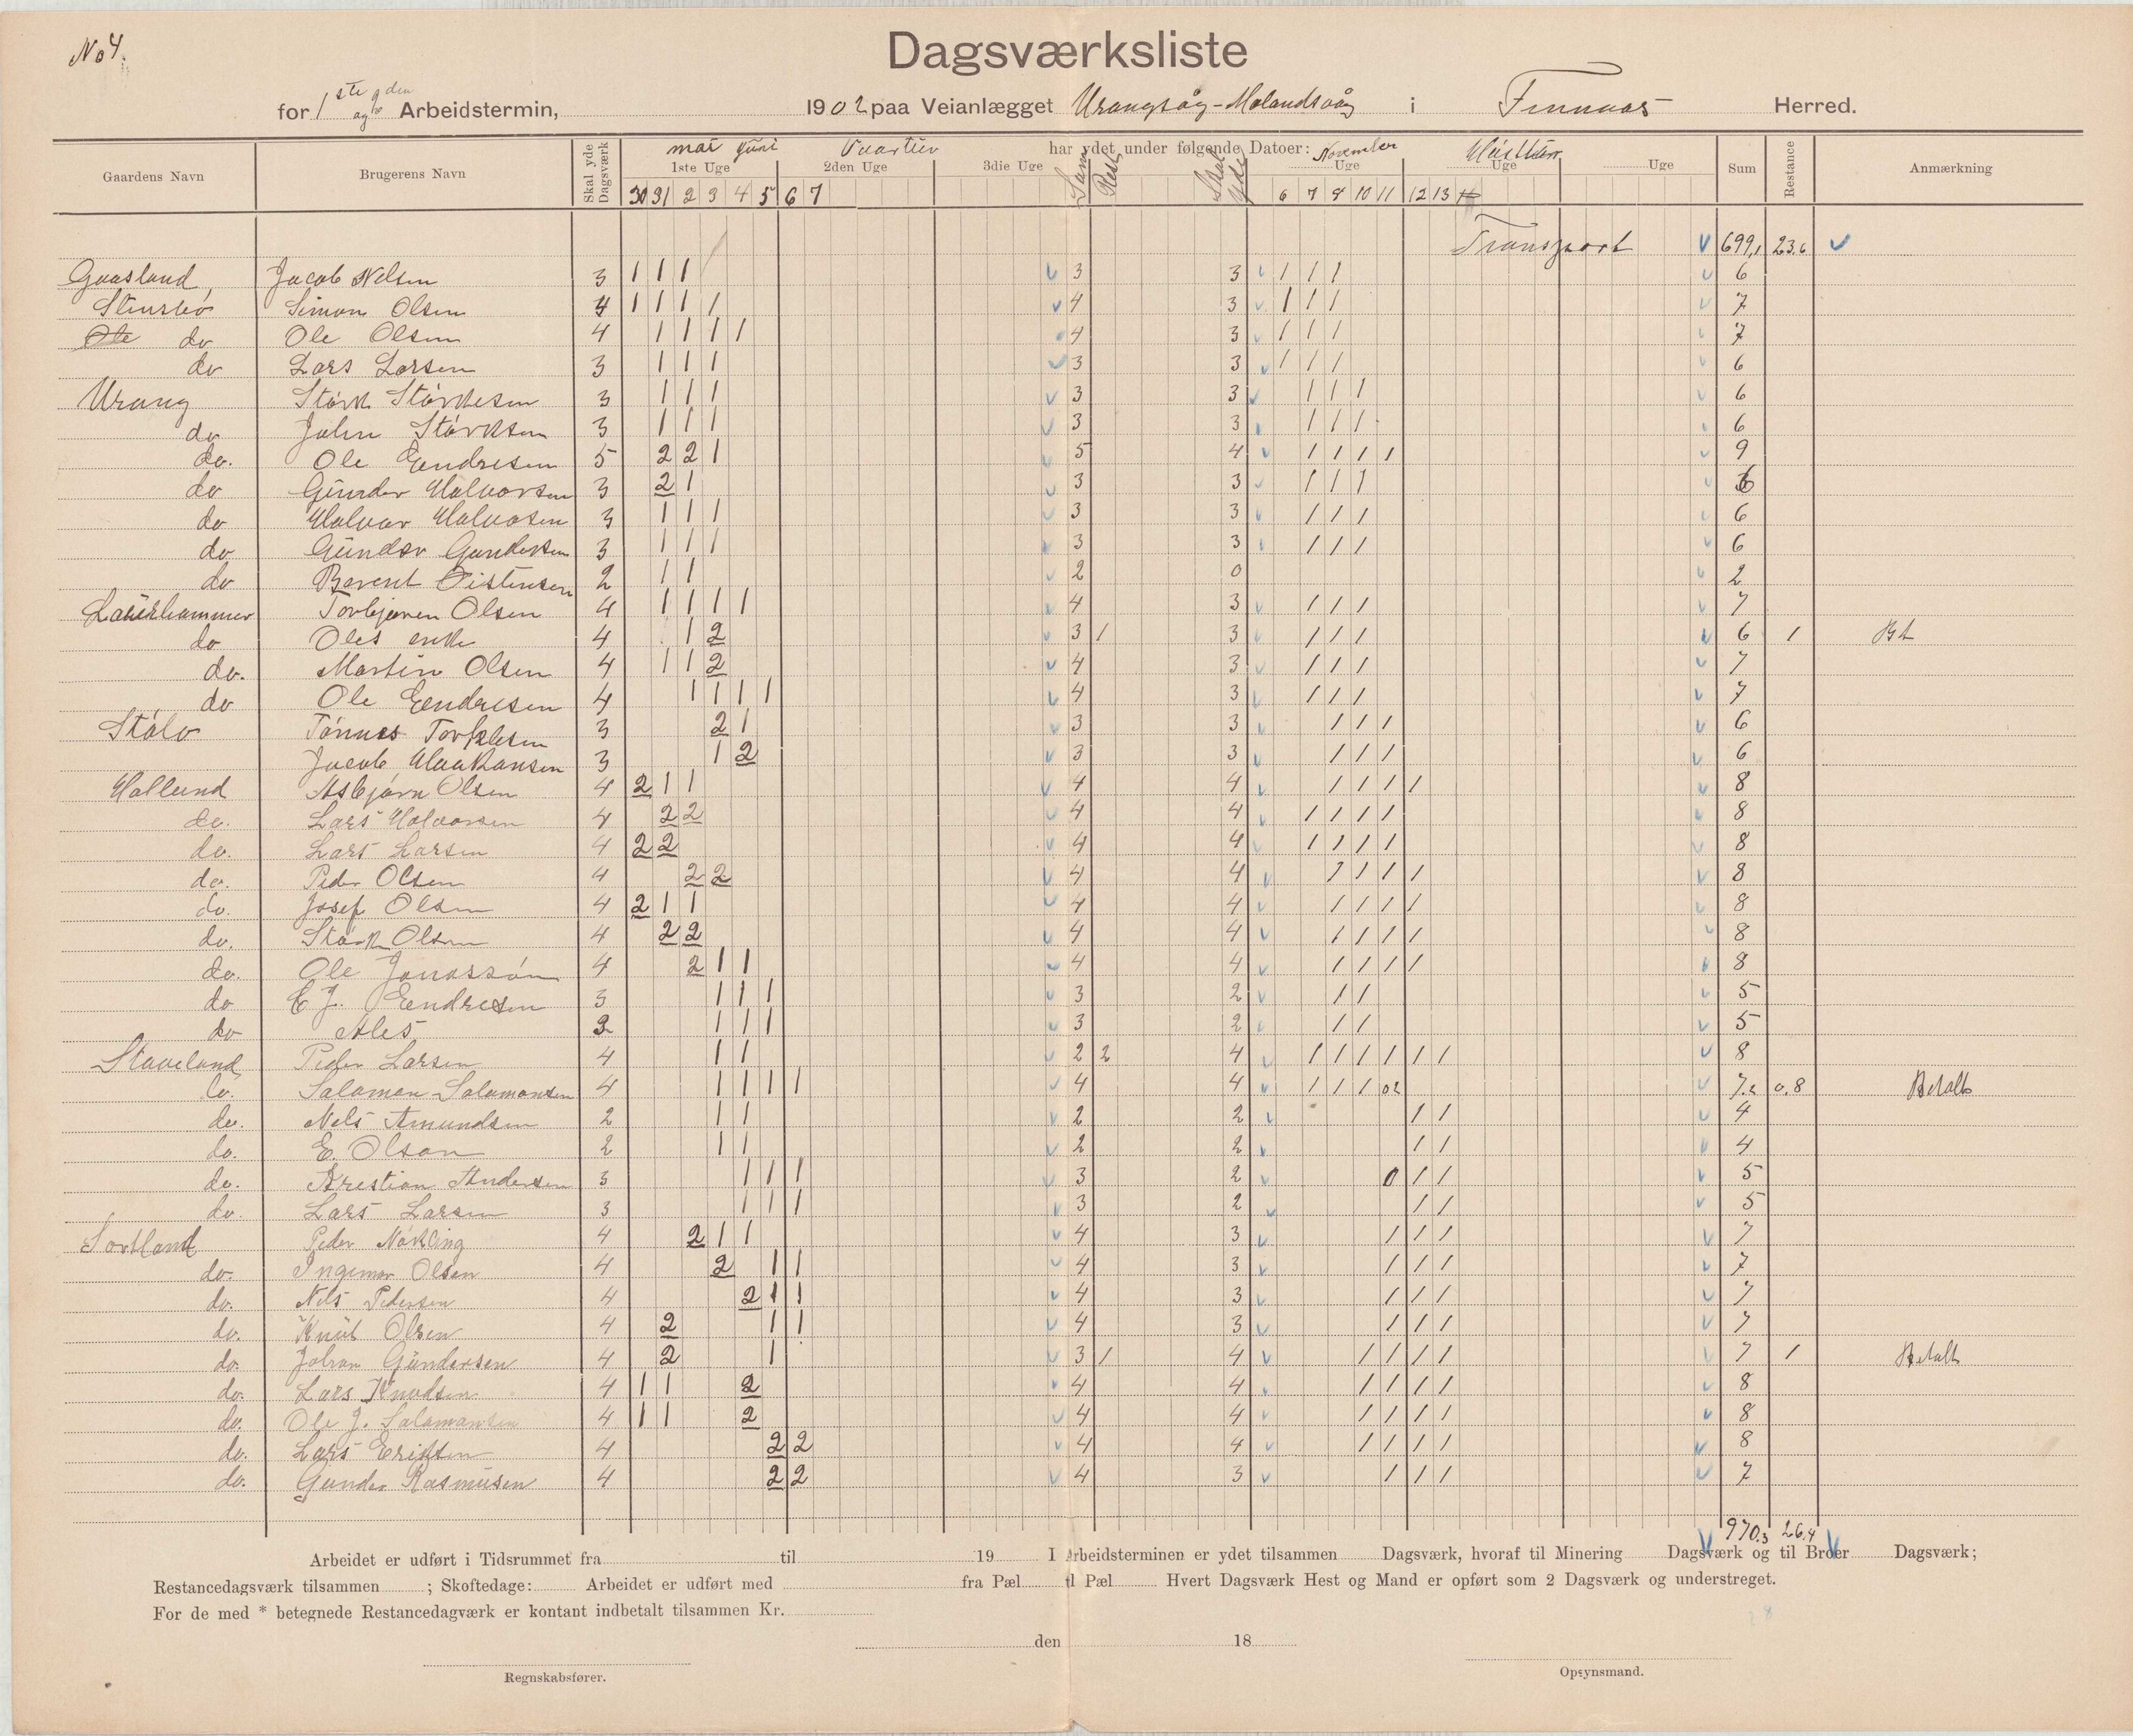 No 4.
Dagsværksliste
for 1ste og 2den Arbeidstermin, 1902 paa Veianlægget Urangsåg - Molandsvåg i Finnaas Herred.
Gaardens Navn Brugerens Navn Skal yde Dagsværk har ydet under følgende Datoer: Sum Restance Anmærkning
mai Juni November
1ste Uge 2den Uge 3die Uge Sum Rest Skal yde Uge Uge Uge
30 31 2 3 4 5 6 7 6 7 8 10 11 12 13
Transport 699,1 23.6
Gaasland Jacob Nelsen 3 1 1 1 3 3 1 1 1 6
Stensbø Simon Olsen 4 1 1 1 1 4 3 1 1 1 7
do Ole Olsen 4 1 1 1 1 4 3 1 1 1 7
do Lars Larsen 3 1 1 1 3 3 1 1 1 6
Urang Størk Størkesen 3 1 1 1 3 3 1 1 1 6
do John Størksen 3 1 1 1 3 3 1 1 1 6
do. Ole Eendresen 5 2 2 1 5 4 1 1 1 1 9
do Gunder Halvorsen 3 2 1 3 3 1 1 1 6
do Halvor Halvosen 3 1 1 1 3 3 1 1 1 6
do Gunder Gundersen 3 1 1 1 3 3 1 1 1 6
do Berent Østensen 2 1 1 2 0 2
Laurhammer Torbjøren Olsen 4 1 1 1 1 4 3 1 1 1 7
do Oles enke 4 1 2 3 1 3 1 1 1 6 1 Bt
do. Martin Olsen 4 1 1 2 4 3 1 1 1 7
do Ole Eendresen 4 1 1 1 1 4 3 1 1 1 7
Stølo Tønnes Torkelsen 3 2 1 3 3 1 1 1 6
Jacob Haakansen 3 1 2 3 3 1 1 1 6
Hallund Asbjørn Olsen 4 2 1 1 4 4 1 1 1 1 8
do. Lars Halvorsen 4 2 2 4 4 1 1 1 1 8
do. Lars Larsen 4 2 2 4 4 1 1 1 1 8
do. Peder Olsen 4 2 2 4 4 1 1 1 1 8
do. Josef Olsen 4 2 1 1 4 4 1 1 1 1 8
do. Størk Olsen 4 2 2 4 4 1 1 1 1 8
do. Ole Jonassøn 4 2 1 1 4 4 1 1 1 1 8
do E J. Eendresen 3 1 1 1 3 2 1 1 5
do Ales 3 1 1 1 3 2 1 1 5
Staveland Peder Larsen 4 1 1 2 2 4 1 1 1 1 1 1 8
do. Salamon Salamonsen 4 1 1 1 1 4 4 1 1 1 02 7.2 0.8 Betalt
do. Nels Amundsen 2 1 1 2 2 1 1 4
do. E. Olson 2 1 1 2 2 1 1 4
do. Krestian Andersen 3 1 1 1 3 2 0 1 1 5
do. Lars Larsen 3 1 1 1 3 2 1 1 5
Sortland Peder Nøkling 4 2 1 1 4 3 1 1 1 7
do. Ingemar Olsen 4 2 1 1 4 3 1 1 1 7
do. Nels Pedersen 4 2 1 1 4 3 1 1 1 7
do. Knut Olsen 4 2 1 1 4 3 1 1 1 7
do. Johan Gundersen 4 2 1 3 1 4 1 1 1 1 7 1 Betalt
do. Lars Knudsen 4 1 1 2 4 4 1 1 1 1 8
do. Ole J. Salamonsen 4 1 1 2 4 4 1 1 1 1 8
do. Lars Eriksen 4 2 2 4 4 1 1 1 1 8
do. Gunder Rasmusen 4 2 2 4 3 1 1 1 7
970.3 26.4
Arbeidet er udført i Tidsrummet fra til 19 I Arbeidsterminen er ydet tilsammen Dagsværk, hvoraf til Minering Dagsværk og til Broer Dagsværk;
Restancedagsværk tilsammen ; Skoftedage: Arbeidet er udført med fra Pæl til Pæl Hvert Dagsværk Hest og Mand er opført som 2 Dagsværk og understreget.
For de med * betegnede Restancedagværk er kontant indbetalt tilsammen Kr.
den 18
Regnskabsfører. Opsynsmand.